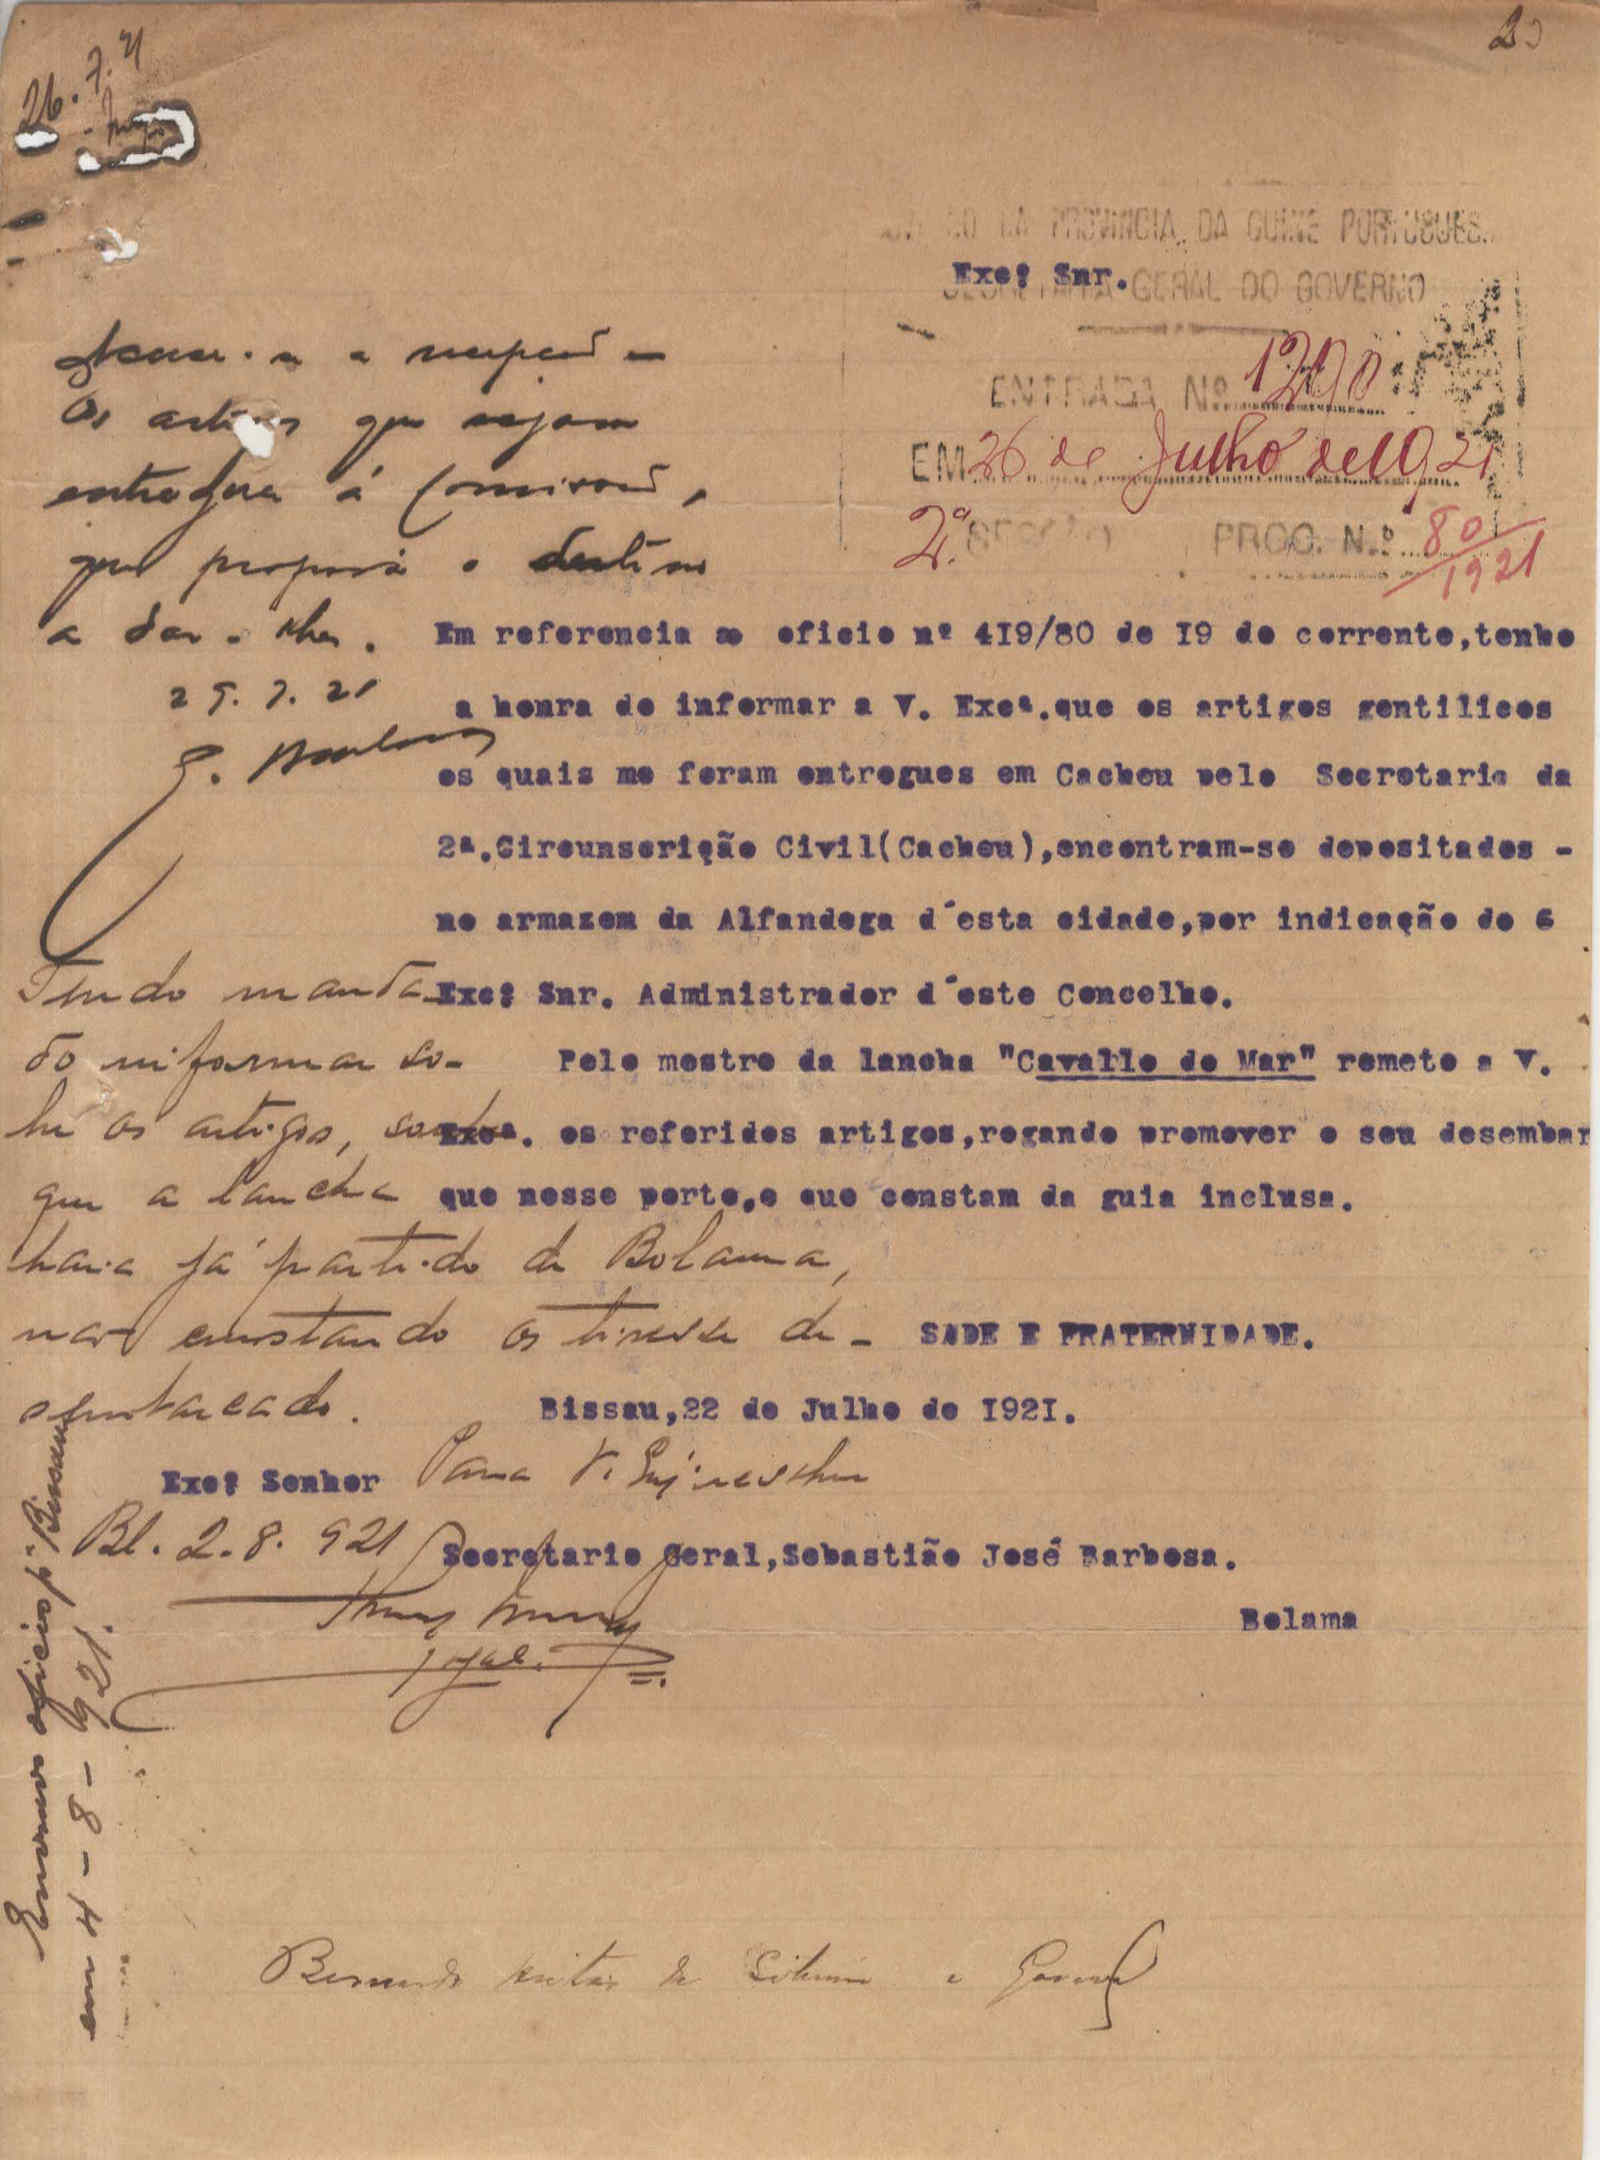 20
26.7.21
GOVERNO DA PROVINCIA DA GUINÉ PORTUGUESA
SECRETARIA GERAL DO GOVERNO
Exc? Snr.
ENTRADA Nº 1290
EM 26 de Julho de 1921
2ª SECÇÃO PROC. N.º 80/1921
Accuse-se a recepção e
os artigos que sejam
entregues á Comissão,
que proporá o destino
a dar-lhes.
29.7.21
S. Barbosa
Em referencia ao oficio nº 419/80 de I9 do corrente,tenho
a honra de informar a V. Excª.que os artigos gentilicos
os quais me foram entregues em Cacheu pelo Secretario da
2ª.Circunscrição Civil(Cacheu),encontram-se depositados -
no armazem da Alfandega d´esta cidade,por indicação do
Exc? Snr. Administrador d´este Concelho.
Pelo mestre da lancha "Cavallo do Mar" remeto a V.
Excª. os referidos artigos,rogando promover o seu desembar
que nesse porto,e que constam da guia inclusa.
SADE E FRATERNIDADE.
Bissau,22 de Julho de I92I.
Exc? Senhor
Secretario Geral,Sebastião José Barbosa.
Bolama
Tendo manda-
do informar so-
bre os artigos, soube
que a lancha
havia já partido de Bolama,
não constando os tivesse de-
sembarcado.
Para V. Exª resolver
Bl. 2.8.921
oficio pª Bissau
em 4-8-921.